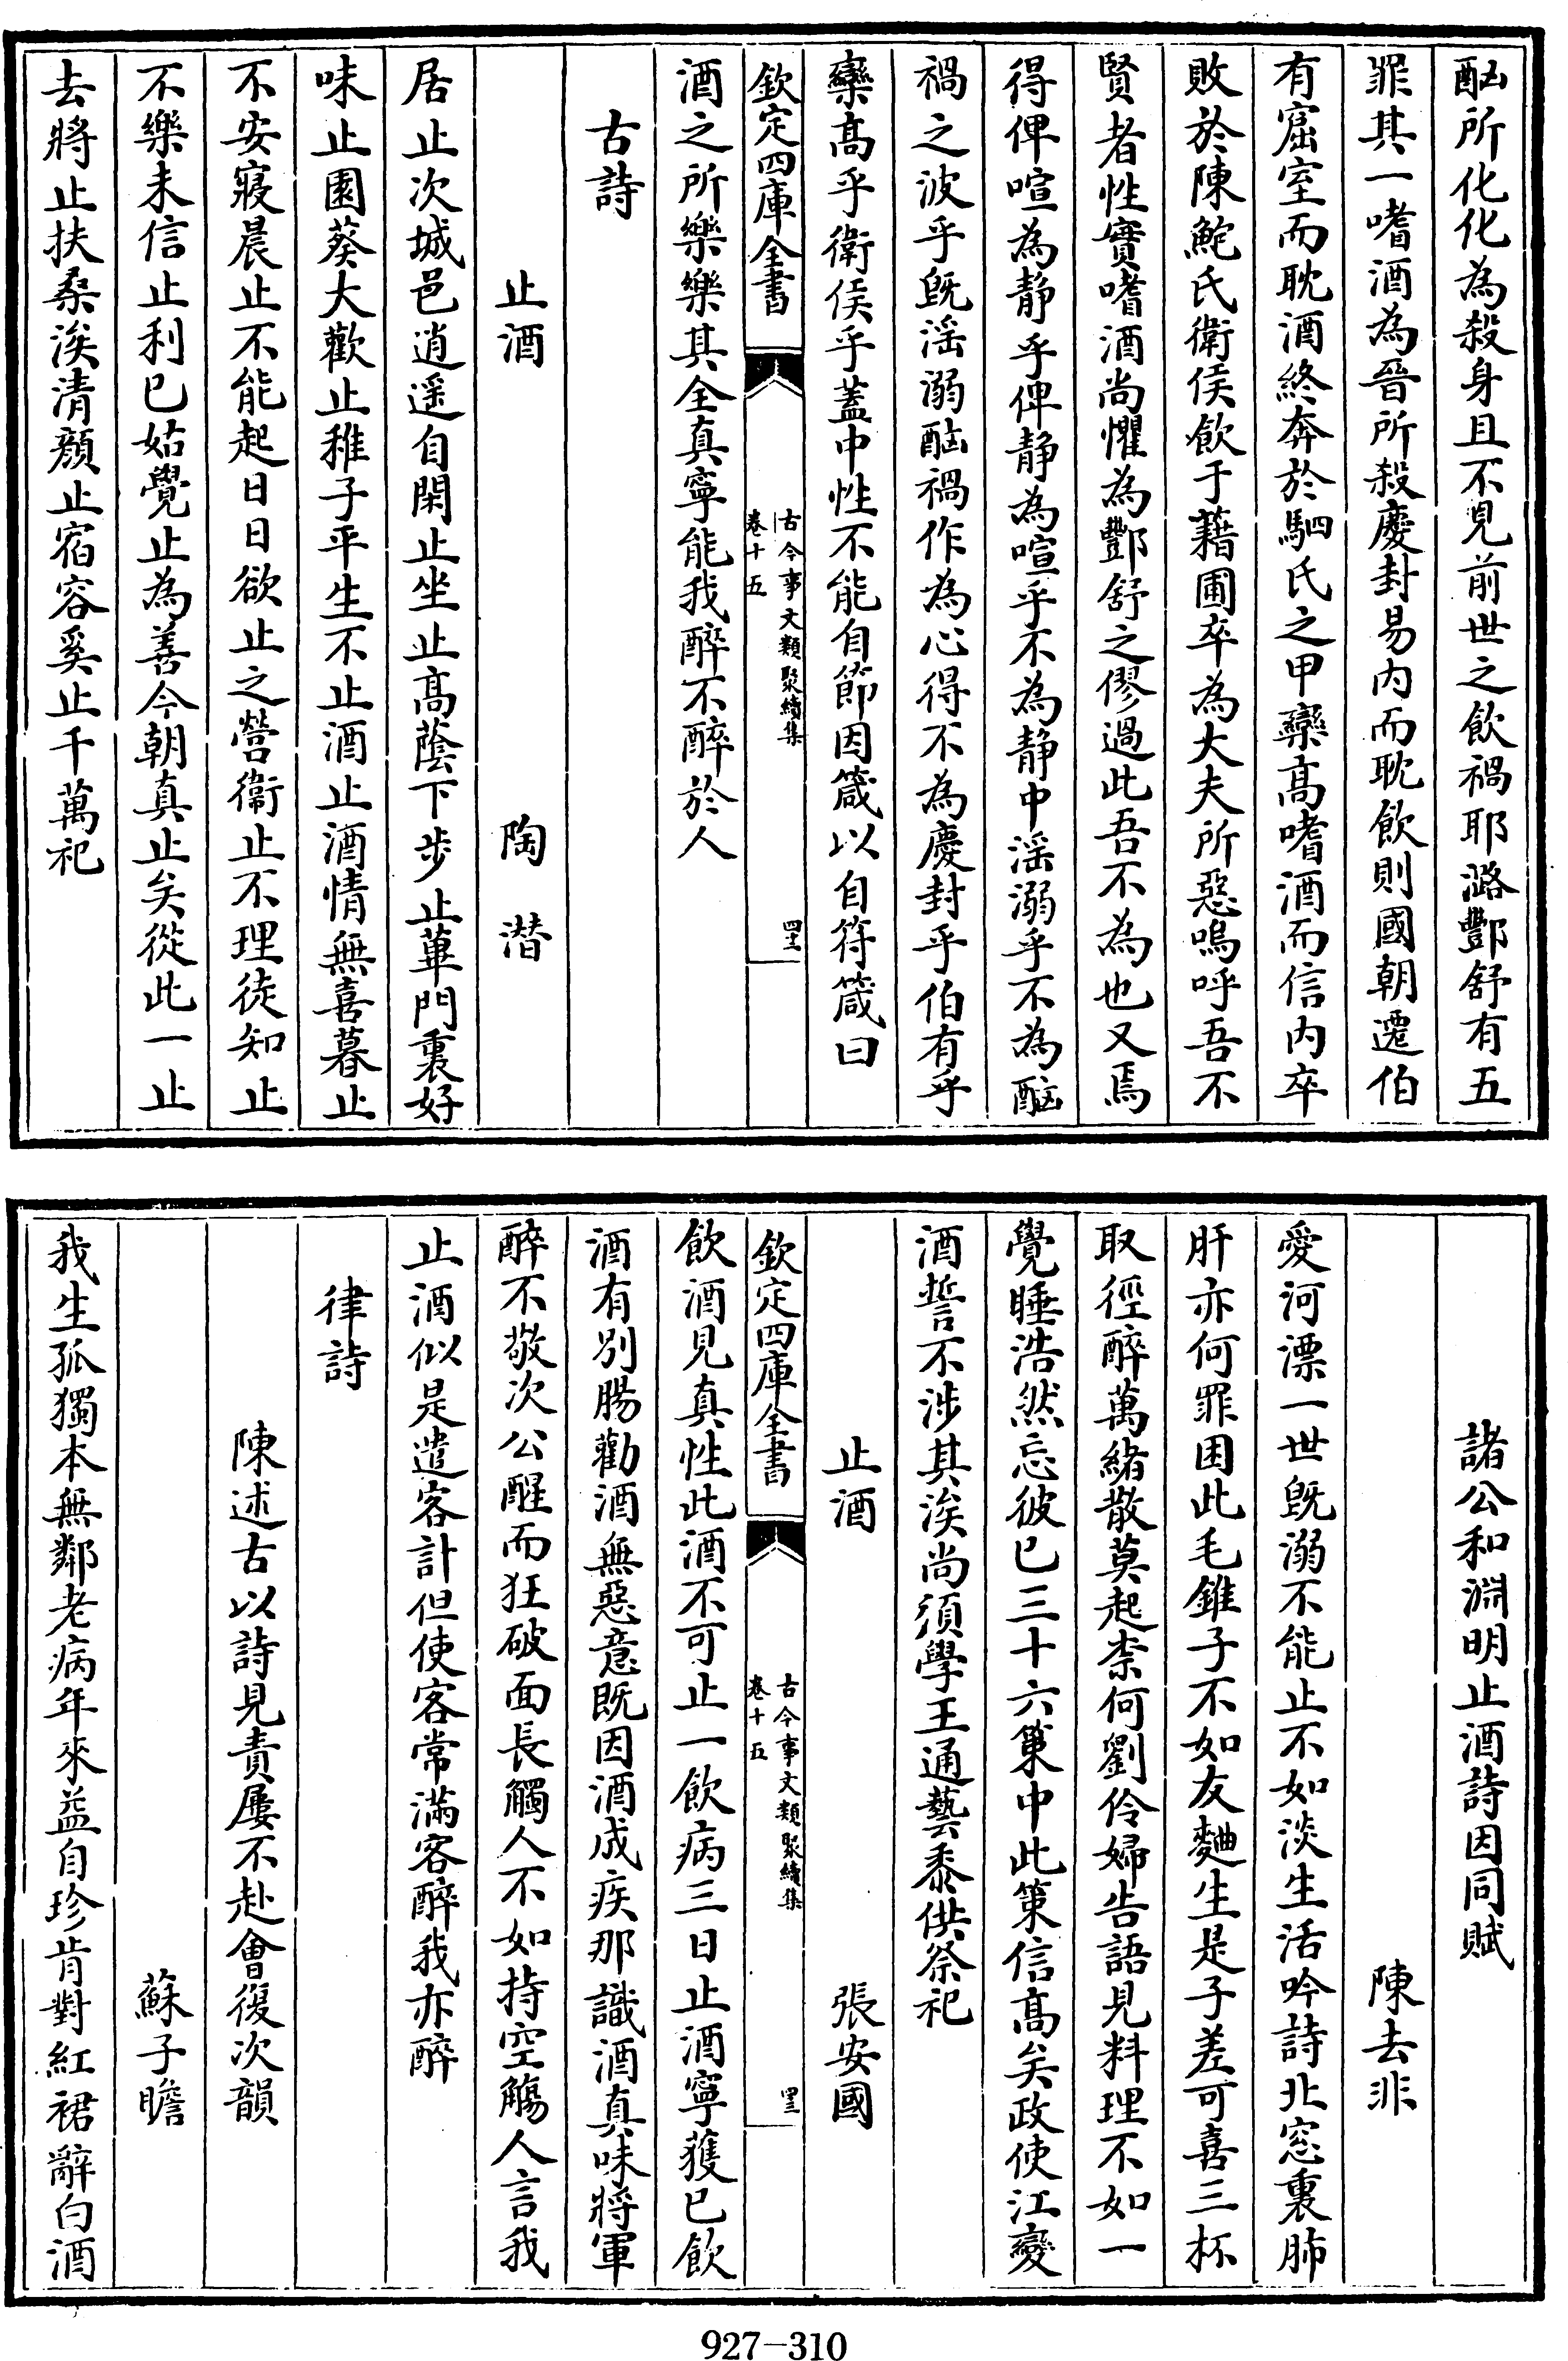 酗所化化為殺身且不見前世之飲禍耶潞酆舒有五
罪其一嗜酒為晉所殺慶封易内而耽飲則國朝遷伯
有窟室而耽酒終奔於駟氏之甲欒髙嗜酒而信内卒
敗於陳鮑氏衛侯飲于藉圃卒為大夫所惡嗚呼吾不
賢者性實嗜酒尚懼為酆舒之僇過此吾不為也又焉
得俾喧為静乎俾静為喧乎不為静中滛溺乎不為酗
禍之波乎既滛溺酗禍作為心得不為慶封乎伯有乎
欒髙乎衛侯乎蓋中性不能自節因箴以自符箴曰
欽定四庫全書
古今事文類聚續集
卷十五
四十二
酒之所樂樂其全真寧能我醉不醉於人
古詩
止酒 陶潛
居止次城邑逍遥自閑止坐止髙蔭下步止蓽門裏好
味止園葵大歡止稚子平生不止酒止酒情無喜暮止
不安寢晨止不能起日日欲止之營衛止不理徒知止
不樂未信止利已姑覺止為善今朝真止矣從此一止
去將止扶桑涘清顔止宿容奚止千萬祀
諸公和淵明止酒詩因同賦
陳去非
愛河漂一世既溺不能止不如淡生活吟詩北窓裏肺
肝亦何罪困此毛錐子不如友麯生是子差可喜三杯
取徑醉萬緒散莫起柰何劉伶婦告語見料理不如一
覺睡浩然忘彼已三十六策中此策信髙矣政使江變
酒誓不涉其涘尚須學王通藝黍供祭祀
止酒 張安國
欽定四庫全書
古今事文類聚續集
卷十五
四十三
飲酒見真性此酒不可止一飲病三日止酒寧獲已飲
酒有别腸勸酒無惡意既因酒成疾那識酒真味將軍
醉不敬次公醒而狂破面長觸人不如持空觴人言我
止酒似是遣客計但使客常滿客醉我亦醉
律詩
陳述古以詩見責屢不赴會復次韻
蘇子瞻
我生孤獨本無鄰老病年來益自珍肯對紅裙辭白酒
927-310